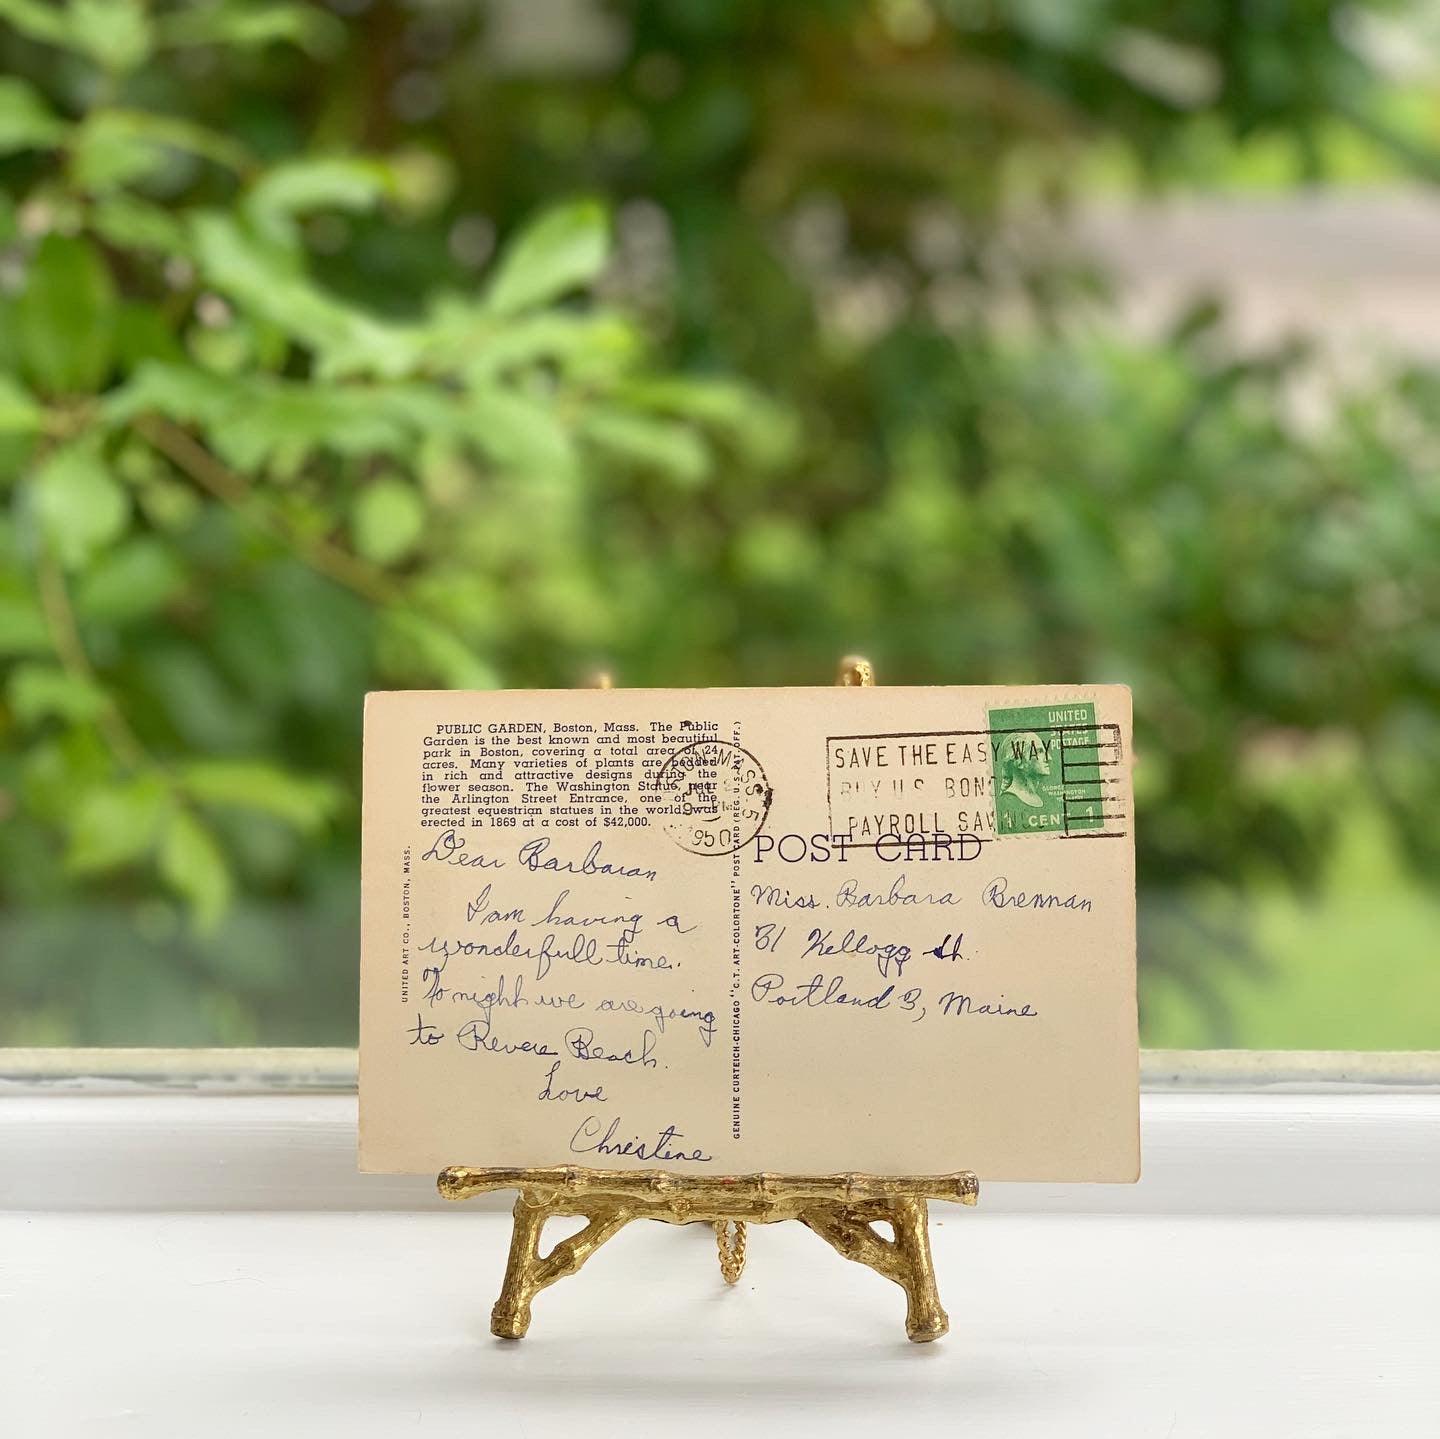 PUBLIC GARDEN, Boston, Mass. The Public
Garden is the best known and most beautiful
park in Boston, covering a total area of 24
acres. Many varieties of plants are bedded
in rich and attractive designs during the
flower season. The Washington Statue, near
the Arlington Street Entrance, one of the
greatest equestrian statues in the world, was
erected in 1869 at a cost of $42,000.
Dear Barbaran
I am having a
wonderfull time.
To night we are going
to Revere Beach.
Love
Christine
UNITED ART CO., BOSTON, MASS.
GENUINE CURTEICH-CHICAGO "C.T. ART-COLORTONE" POST CARD (REG. U.S. PAT. OFF.)
MASS. 5
1950
SAVE THE EASY WAY
BUY U.S. BONDS
PAYROLL SAV
UNITED
STATES
POSTAGE
GEORGE
WASHINGTON
1 CENT 1
POST CARD
Miss. Barbara Brennan
31 Kellogg St.
Portland 3, Maine